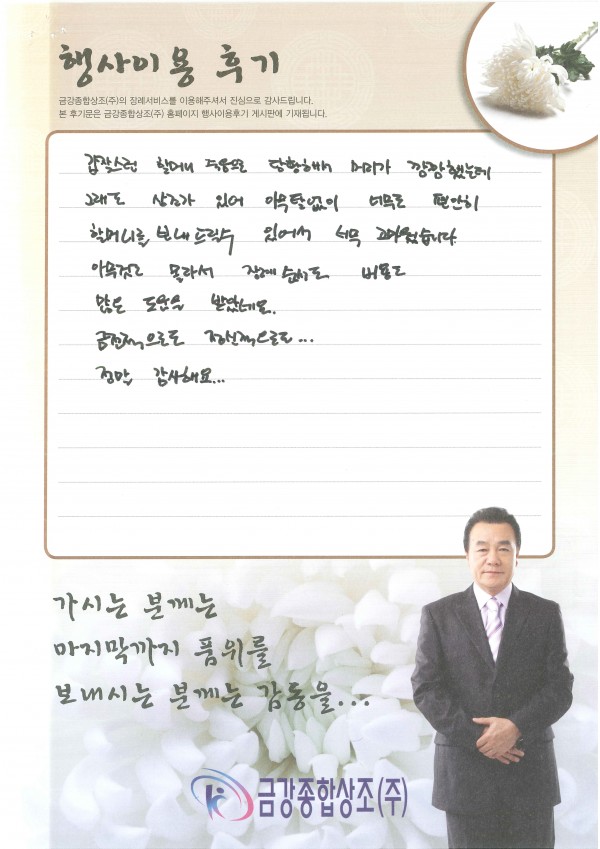 행사이용 후기
금강종합상조(주)의 장례서비스를 이용해주셔서 진심으로 감사드립니다.
본 후기문은 금강종합상조(주) 홈페이지 행사이용후기 게시판에 기재됩니다.
갑작스런 할머니 죽음으로 당황해서 머리가 깜깜했는데
그래도 상조가 있어 아무탈없이 너무도 편안히
할머니를 보내드릴수 있어서 너무 고마웠습니다.
아무것도 몰라서 장례 순서도 비용도
많은 도움을 받았네요.
금전적으로도 정신적으로도...
정말 감사해요...
가시는 분께는
마지막까지 품위를
보내시는 분께는 감동을...
금강종합상조(주)